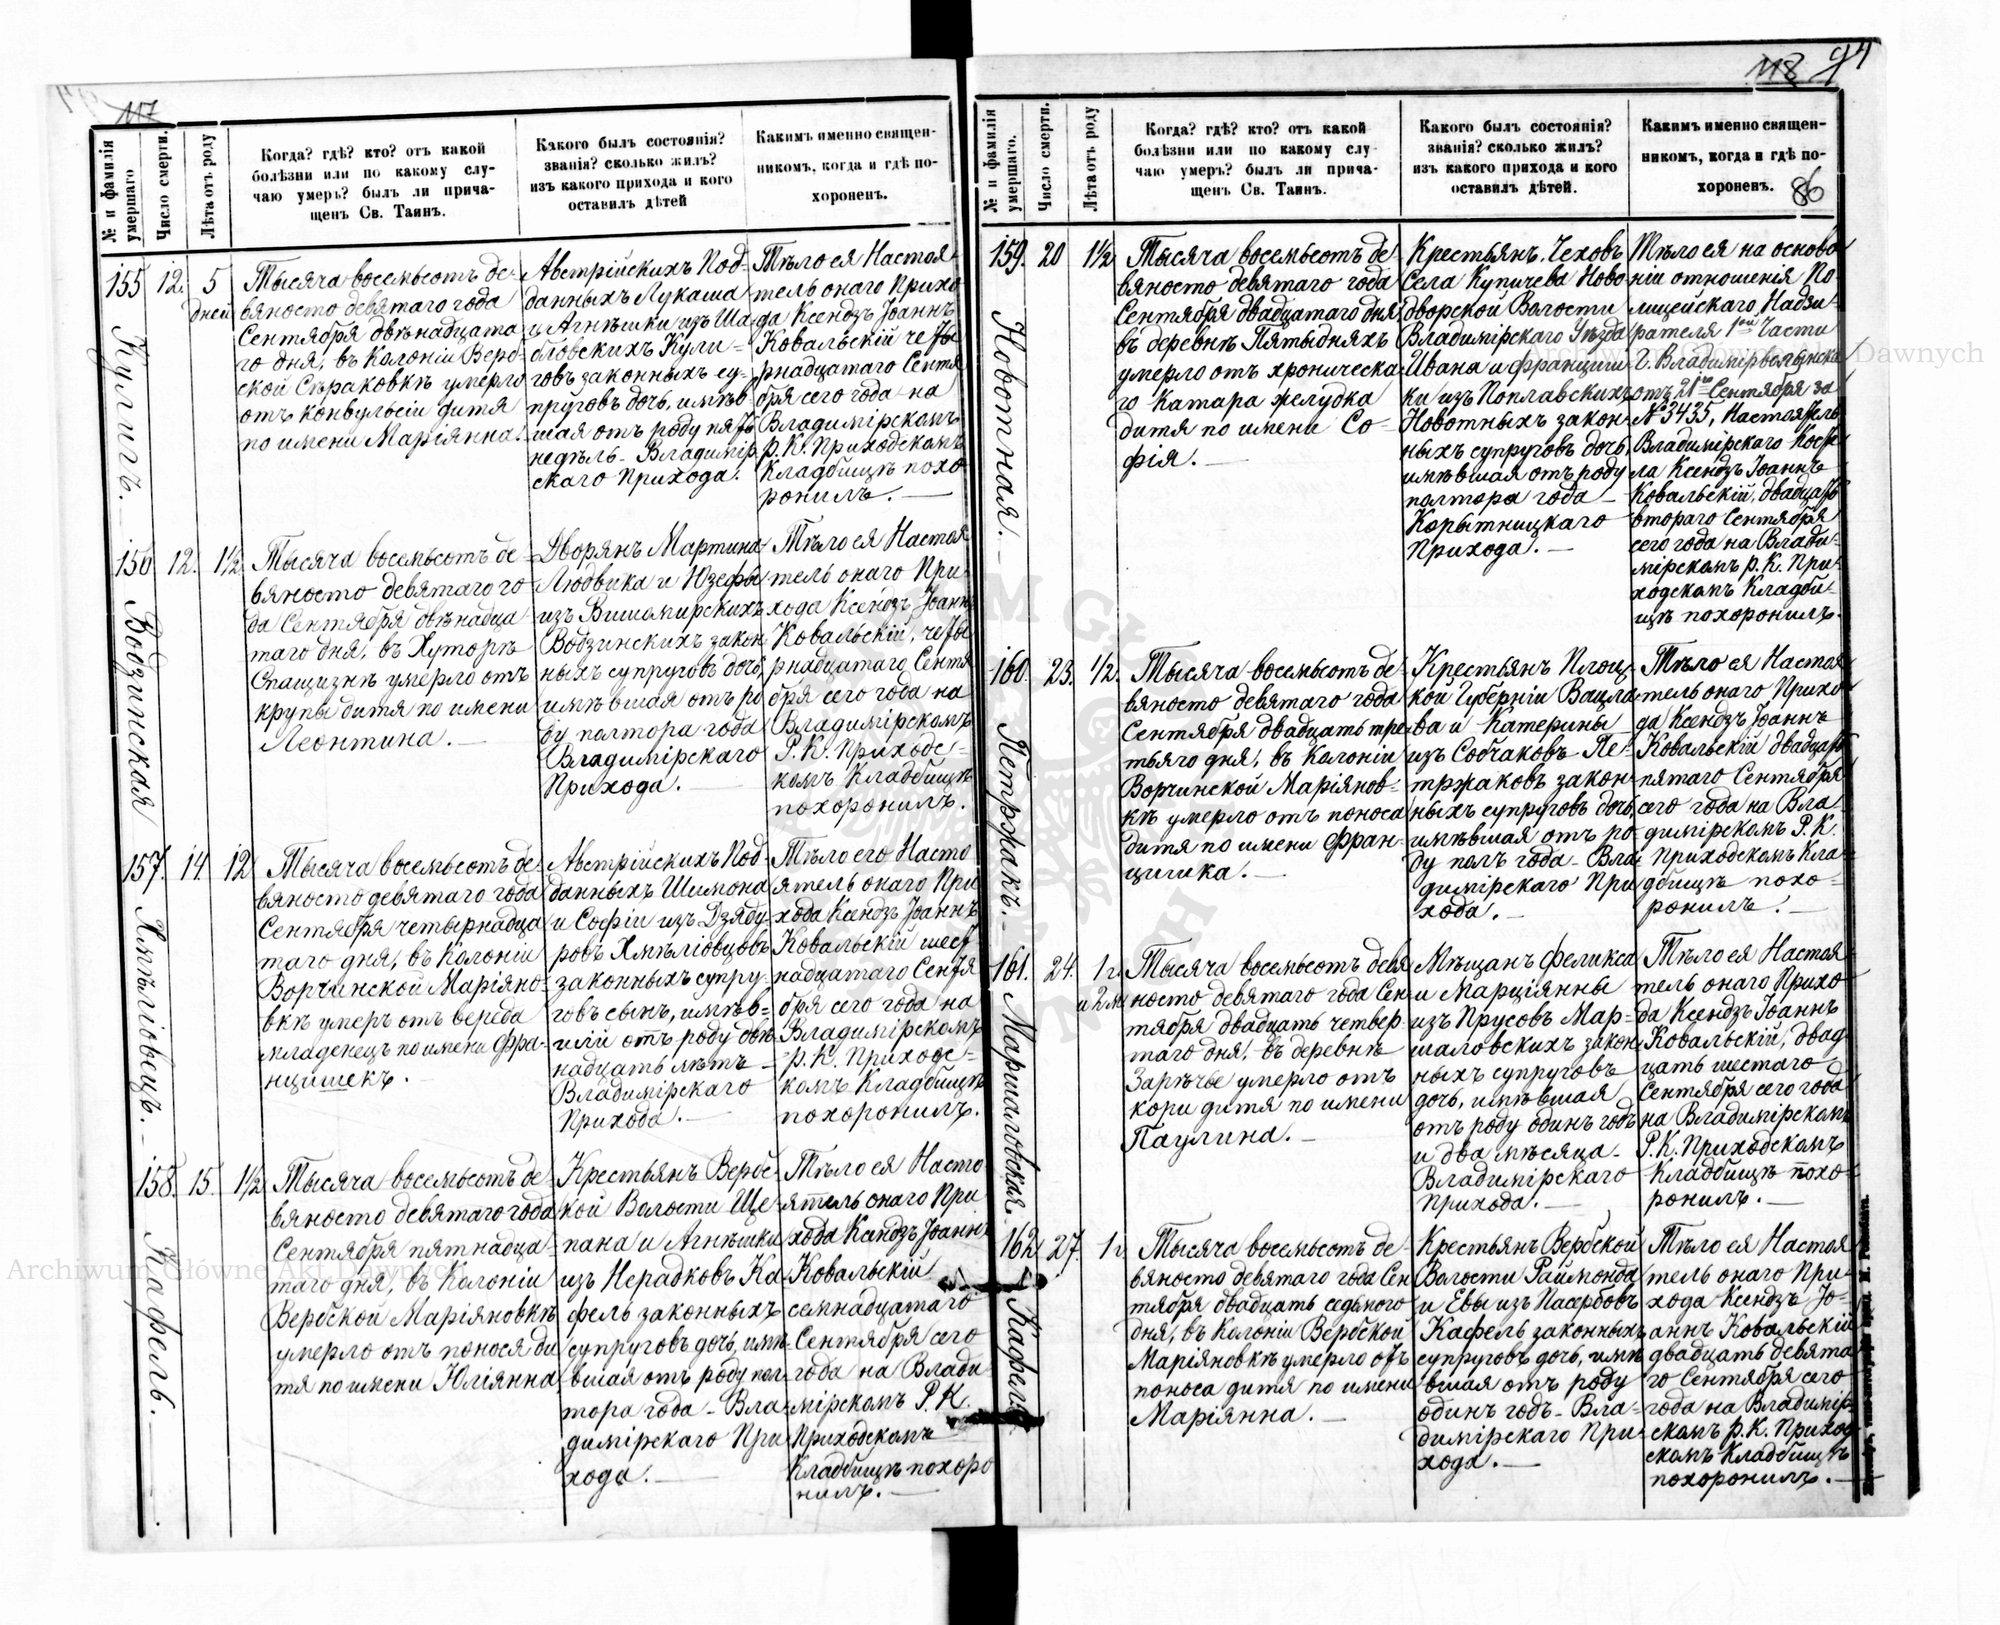 117
№ и фамилія умершаго
Число смерти.
Лѣта отъ роду
Когда? гдѣ? кто? отъ какой
болѣзни или по какому слу-
чаю умеръ? былъ ли прича-
щенъ Св. Таинъ.
Какого былъ состоянія?
званія? сколько жилъ?
изъ какого прихода и кого
оставилъ дѣтей
Какимъ именно священ-
никомъ, когда и гдѣ по-
хороненъ.
155
Кулигъ.
12.
5
дней
Тысяча восемьсотъ де-
вяносто девятаго года
Сентября двѣнадцата
го дня, въ Колоніи Верб-
ской Сѣраковкѣ умерло
отъ конвульсіи дитя
по имени Маріянна.
Австрійскихъ Под-
данныхъ Лукаша
и Агнѣшки изъ Ша-
бловскихъ Кули-
говъ законныхъ су-
пруговъ дочь, имѣв-
шая отъ роду пять
недѣль - Владимір
скаго Прихода.
Тѣло ея Настоя-
тель онаго Прихо
да Ксендзъ Іоаннъ
Ковальскій четы
рнадцатаго Сентя
бря сего года на
Владимірскомъ
Р. К. Приходскомъ
Кладбищѣ похо
ронилъ.
156
Водзинская
12.
1½
Тысяча восемьсотъ де-
вяносто девятаго го-
да Сентября двѣнадца-
таго дня, въ Хуторѣ
Спащизнѣ умерло отъ
крупы дитя по имени
Леонтина.
Дворянъ Мартина
Людвика и Юзефы
изъ Вишомирскихъ
Водзинскихъ закон
ныхъ супруговъ дочь,
имѣвшая отъ ро
ду полтора года
Владимірскаго
Прихода.
Тѣло ея Настоя
тель онаго При-
хода Ксендзъ Іоаннъ
Ковальскій, четы
рнадцатаго Сентя
бря сего года на
Владимірскомъ
Р. К. Приходс-
комъ Кладбищѣ
похоронилъ.
157.
Хмѣліовецъ.
14
12
Тысяча восемьсотъ де-
вяносто девятаго года
Сентября четырнадца
таго дня, въ Колоніи
Ворчинской Маріяно-
вкѣ умеръ отъ вереда
младенецъ по имени Фра-
нцишекъ.
Австрійскихъ Под-
данныхъ Шимона
и Софіи изъ Дзяду-
ровъ Хмѣліовцовъ
законныхъ супру-
говъ сынъ, имѣв-
шій отъ роду двѣ
надцать лѣтъ -
Владимірскаго
Прихода.
Тѣло его Насто
ятель онаго При
хода Ксендзъ Іоаннъ
Ковальскій шест
надцатаго Сентя
бря сего года на
Владимірскомъ
Р. К. Приходс-
комъ Кладбищѣ
похоронилъ.
158.
Кафель.
15.
1½
Тысяча восемьсотъ де-
вяносто девятаго года
Сентября пятнадца-
таго дня, въ Колоніи
Вербской Маріяновкѣ
умерло отъ поноса ди
тя по имени Юліянна
Крестьянъ Вербс-
кой Волости Ще-
пана и Агнѣшки
изъ Нерадковъ Ка
фель законныхъ
супруговъ дочь, имѣ-
вшая отъ роду пол-
тора года - Вла-
димірскаго При
хода.
Тѣло ея Насто-
ятель онаго При
хода Ксендзъ Іоаннъ
Ковальскій
семнадцатаго
Сентября сего
года на Влади-
мірскомъ Р. К.
Приходскомъ
Кладбищѣ похоро
нилъ.
118 94
№ и фамилія умершаго.
Число смерти.
Лѣта отъ роду
Когда? гдѣ? кто? отъ какой
болѣзни или по какому слу-
чаю умеръ? былъ ли прича-
щенъ Св. Таинъ.
Какого былъ состоянія?
званія? сколько жилъ?
изъ какого прихода и кого
оставилъ дѣтей.
Какимъ именно священ-
никомъ, когда и гдѣ по-
хороненъ.
86
159.
Новотная.
20
1½
Тысяча восемьсотъ де-
вяносто девятаго года
Сентября двадцатаго дня
въ деревнѣ Пятыдняхъ
умерло отъ хроническа
го Катара желудка
дитя по имени Со-
фія.
Крестьянъ, Чеховъ
Села Купичева Ново-
дворской Волости
Владимірскаго Уѣзда
Ивана и Францишки
изъ Поплавскихъ
Новотныхъ закон-
ныхъ супруговъ дочь,
имѣвшая отъ роду
полтора года
Корытницкаго
Прихода.
Тѣло ея на основа
ніи отношенія По-
лицейскаго Надзи-
рателя 1ой Части
г. Владимірволынска
отъ 21го Сентября за
№ 3435, Настоятель
Владимірскаго Косте
ла Ксендзъ Іоаннъ
Ковальскій, двадцать
втораго Сентября
сего года на Влади-
мірскомъ Р. К. При-
ходскомъ Кладби-
щѣ похоронилъ.
160.
Петржакъ.
23.
½
Тысяча восемьсотъ де-
вяносто девятаго года
Сентября двадцать тре-
тьяго дня, въ Колоніи
Ворчинской Маріянов-
кѣ умерло отъ поноса
дитя по имени Фран-
цишка.
Крестьянъ Плоц-
кой Губерніи Вацла-
ва и Катерины
изъ Собчаковъ Пе-
тржаковъ закон-
ныхъ супруговъ дочь,
имѣвшая отъ ро-
ду полъ года - Вла-
димірскаго При
хода.
Тѣло ея Настоя
тель онаго Прихо
да Ксендзъ Іоаннъ
Ковальскій двадцать
пятаго Сентября
сего года на Вла-
димірскомъ Р. К.
Приходскомъ Кла-
дбищѣ похо-
ронилъ.
161.
Маршаловская.
24.
1 г.
и 2 м.
Тысяча восемьсотъ девя
носто девятаго года Сен-
тября двадцать четвер
таго дня, въ деревнѣ
Зарѣчье умерло отъ
кори дитя по имени
Паулина.
Мѣщанъ Феликса
и Марціянны
изъ Прусовъ Мар-
шаловскихъ закон-
ныхъ супруговъ
дочь, имѣвшая
отъ роду одинъ годъ
и два мѣсяца -
Владимірскаго
Прихода.
Тѣло ея Настоя
тель онаго Прихо-
да Ксендзъ Іоаннъ
Ковальскій, двад-
цать шестаго
Сентября сего года
на Владимірскомъ
Р. К. Приходскомъ
Кладбищѣ похо-
ронилъ.
162.
Кафель.
27.
1 г.
Тысяча восемьсотъ де-
вяносто девятаго года Сен
тября двадцать седьмого
дня, въ Колоніи Вербской
Маріяновкѣ умерло отъ
поноса дитя по имени
Маріянна.
Крестьянъ Вербской
Волости Раймонда
и Евы изъ Пасербовъ
Кафель законныхъ
супруговъ дочь, имѣ
вшая отъ роду
одинъ годъ - Вла-
димірскаго При-
хода.
Тѣло ея Настоя
тель онаго При-
хода Ксендзъ Іо-
аннъ Ковальскій
двадцать девята
го Сентября сего
года на Владимір-
скомъ Р. К. Приход
скомъ Кладбищѣ
похоронилъ.
Archiwum Główne Akt Dawnych
Archiwum Główne Akt Dawnych